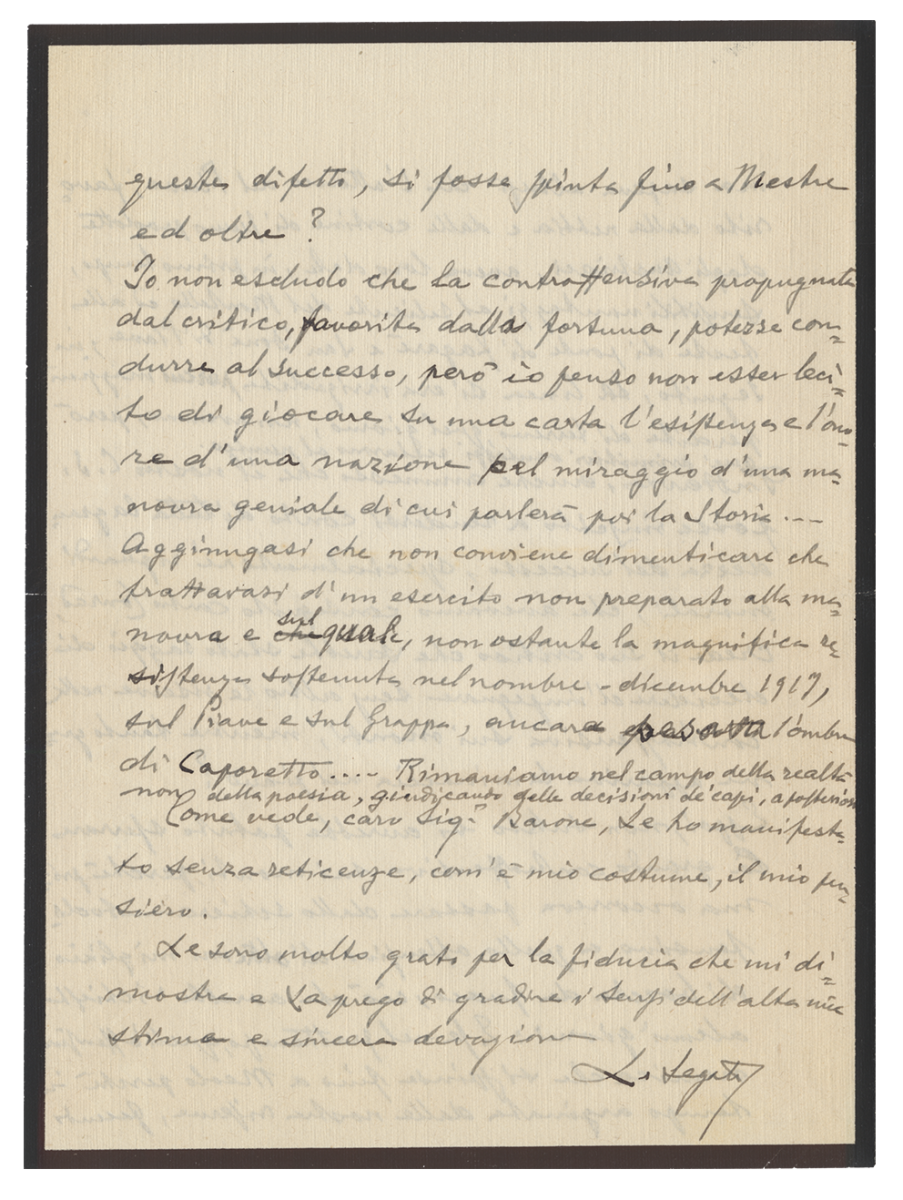 queste difetto, si fosse spinta fino a Mestre
ed oltre?
Io non escludo che la controffensiva propugnata
dal critico, favorita dalla fortuna, potesse con=
durre al successo, però io penso non esser leci=
to di giocare su una carta l'esistenza e l'ono=
re d'una nazione pel miraggio d'una ma=
novra geniale di cui parlerà poi la Storia ...
Aggiungasi che non conviene dimenticare che
trattavasi d'un esercito non preparato alla ma=
novra e sul quale, non ostante la magnifica re=
sistenza sostenuta nel novembre - dicembre 1917,
sul Piave e sul Grappa, ancora pesava l'ombra
di Caporetto.... Rimaniamo nel campo della realtà
non della poesia, giudicando delle decisioni de' capi, a posteriori
Come vede, caro Sigr Barone, Le ho manifesta=
to senza reticenze, com'è mio costume, il mio pen=
siero.
Le sono molto grato per la fiducia che mi di=
mostra e La prego di gradire i sensi dell'alta mia
stima e sincera devozione
L. Segato